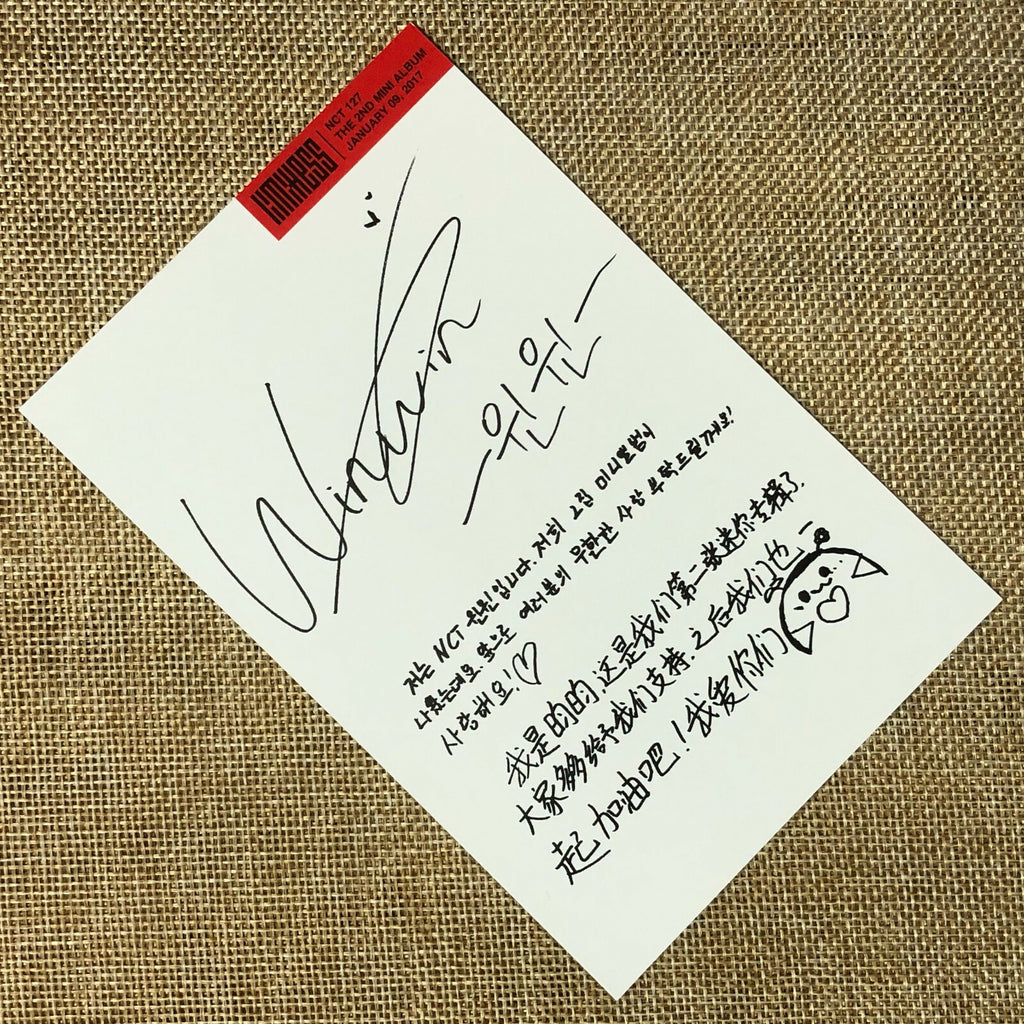 LIMITLESS
NCT 127
THE 2ND MINI ALBUM
JANUARY 09, 2017
WinWin
윈윈
저는 NCT 윈윈입니다. 저희 2집 미니앨범이
나왔는데요. 앞으로 여러분의 무한한 사랑 부탁드릴께요!
사랑해요!
我是昀昀.这是我们第二张迷你专辑了.
大家多多给予我们支持.之后我们也一
起加油吧!我爱你们